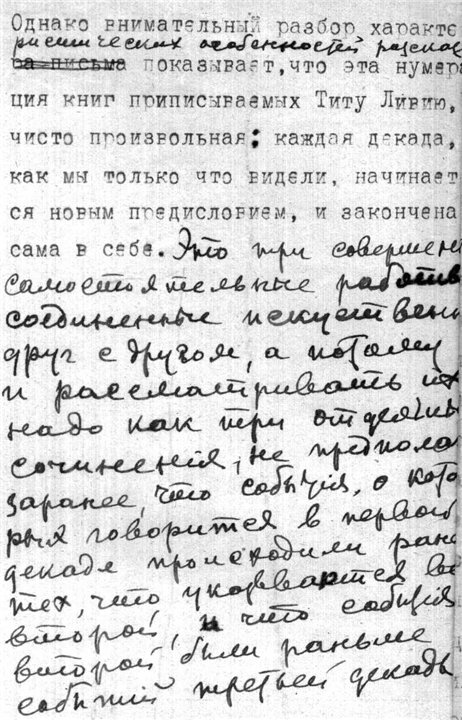 Однако внимательный разбор характе
ристических особенностей рассказ
ра письма показывает, что эта нумера
ция книг приписываемых Титу Ливию,
чисто произвольная: каждая декада,
как мы только что видели, начинает
ся новым предисловием, и закончена
сама в себе. Это три совершенн
самостоятельные работы
соединенные искуствен
друг с другом, а потому
и рассматривать их
надо как три отдельны
сочинения, не предпола
заранее, что события, о кото
рых говорится в первой
декаде происходили ране
тех, что указываются во
второй, и что события
второй были раньше
событий третьей декады